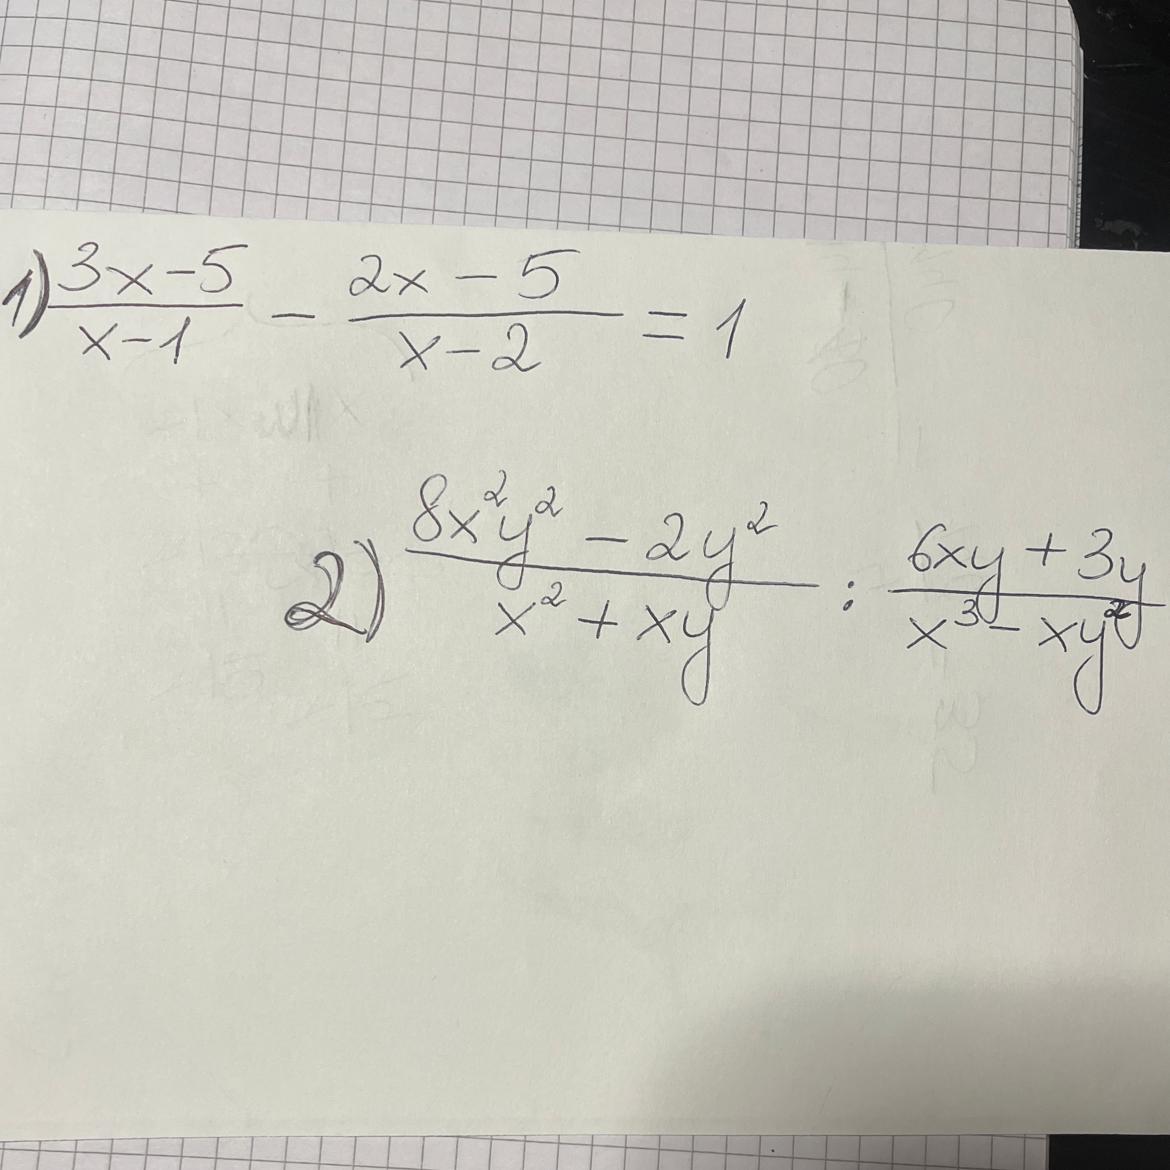 1) (3x-5)/(x-1) - (2x-5)/(x-2) = 1
2) (8x²y² - 2y²)/(x² + xy) : (6xy + 3y)/(x³ - xy²)